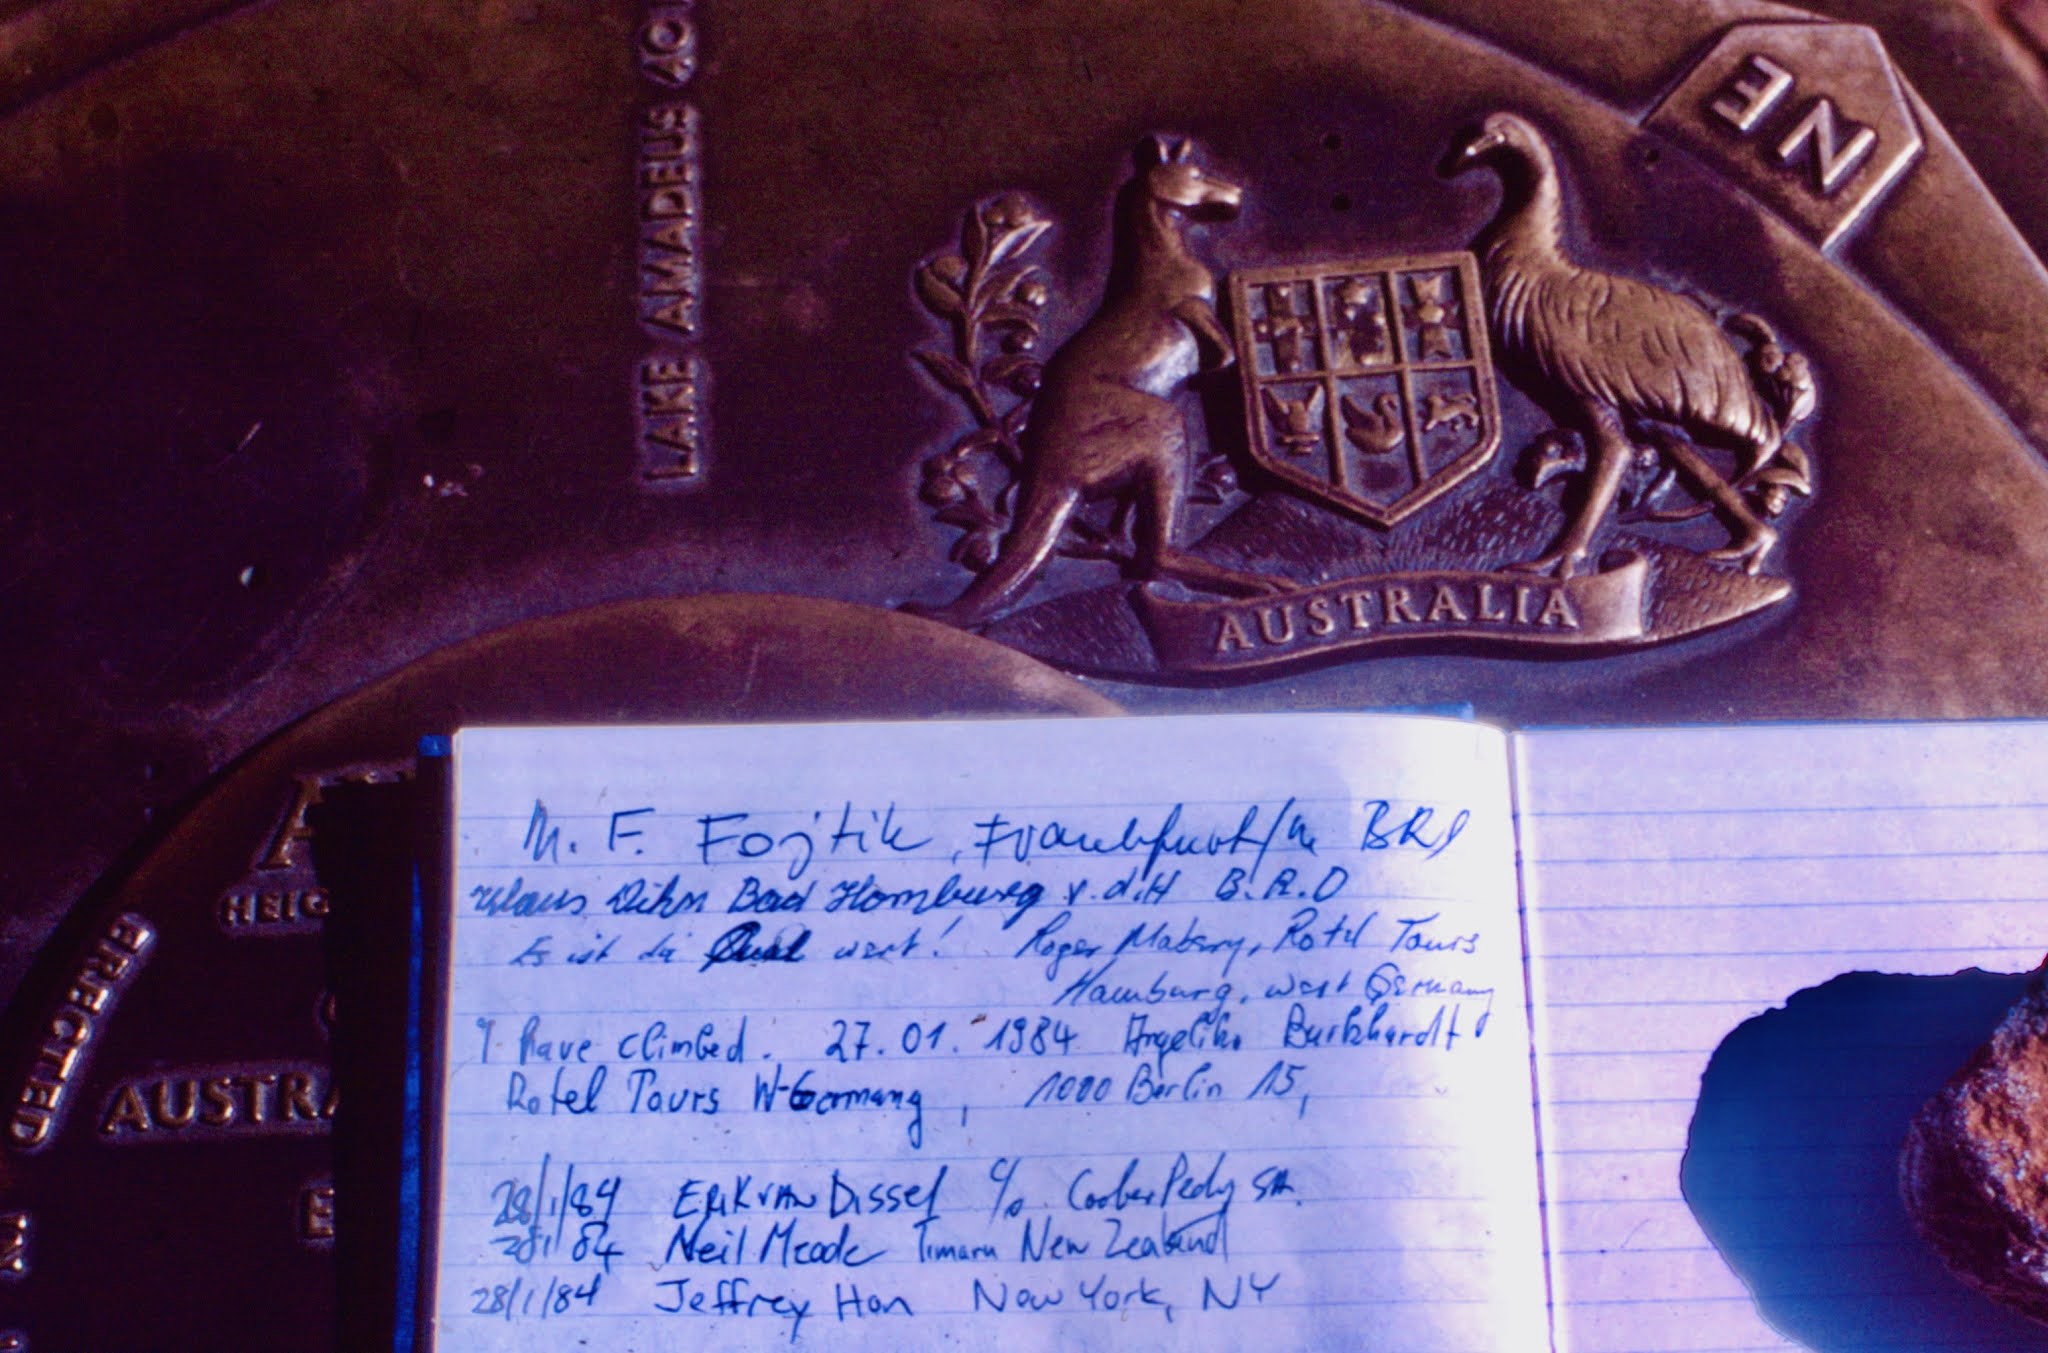 LAKE AMADEUS 40
NE
AUSTRALIA
HEIG
ERECTED
AUSTRA
IN
M. F. Fojtik, Frankfurt/M BRD
Klaus Dihn Bad Homburg v.d.H B.R.D
Es ist die Qual wert! Roger Mabery, Rotel Tours
Hamburg, West Germany
I have climbed. 27.01.1984 Angelika Burkhardt
Rotel Tours W-Germany, 1000 Berlin 15,
28/1/84 ERIK VAN Dissel c/o Coober Pedy SA.
28/1/84 Neil Meade Timaru New Zealand
28/1/84 Jeffrey Hon New York, NY